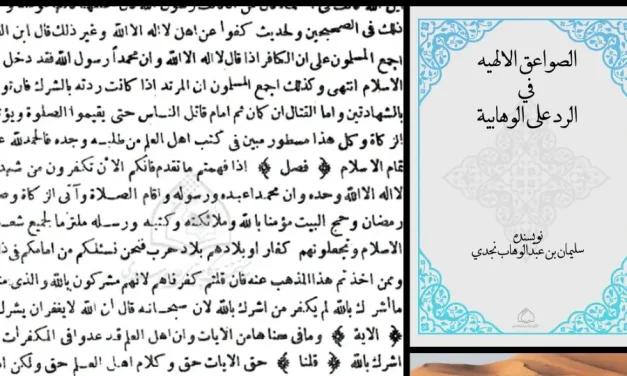 ذلك في الصحيحين ولحديث كفوا عن اهل لا اله الا الله وغير ذلك قال ابن
اجمع المسلمون على ان الكافر اذا قال لا اله الا الله وان محمداً رسول الله فقد دخل
الاسلام انتهى وكذلك اجمع المسلمون ان المرتد اذا كانت ردته بالشرك فان تو
بالشهادتين واما القتال ان كان ثم امام قاتل الناس حتى يقيموا الصلوة ويؤ
الزكاة وكل هذا مسطور مبين في كتب اهل العلم من طلبه وجده فالحمد لله
تمام الاسلام ﴿ فصل ﴾ اذا فهمتم ما تقدم فانكم الآن تكفرون من شهد
لا اله الا الله وحده وان محمدا عبده ورسوله واقام الصلاة وآتى الزكاة وص
رمضان وحج البيت مؤمنا بالله وملائكته وكتبه ورسله ملتزما لجميع شعـ
الاسلام وتجعلونهم كفار او بلادهم بلاد حرب فنحن نسئلكم من امامكم في ذ
وممن اخذتم هذا المذهب عنه فان قلتم كفرناهم لانهم مشركون بالله والذى
ما أشرك بالله لم يكفر من اشرك بالله لان سبحانه قال ان الله لا يغفر ان يشرك
﴿ الاية ﴾ وما في معناها من الايات وان اهل العلم قد عدوا في المكفرات
اشرك بالله ﴿ قلنا ﴾ حق الايات حق وكلام اهل العلم حق ولكن
الصواعق الالهيه
في
الرد على الوهابية
نویسنده
سليمان بن عبدالوهاب نجدي